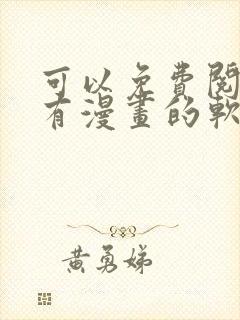 可以免費閱
有漫畫的軟
黃勇娣